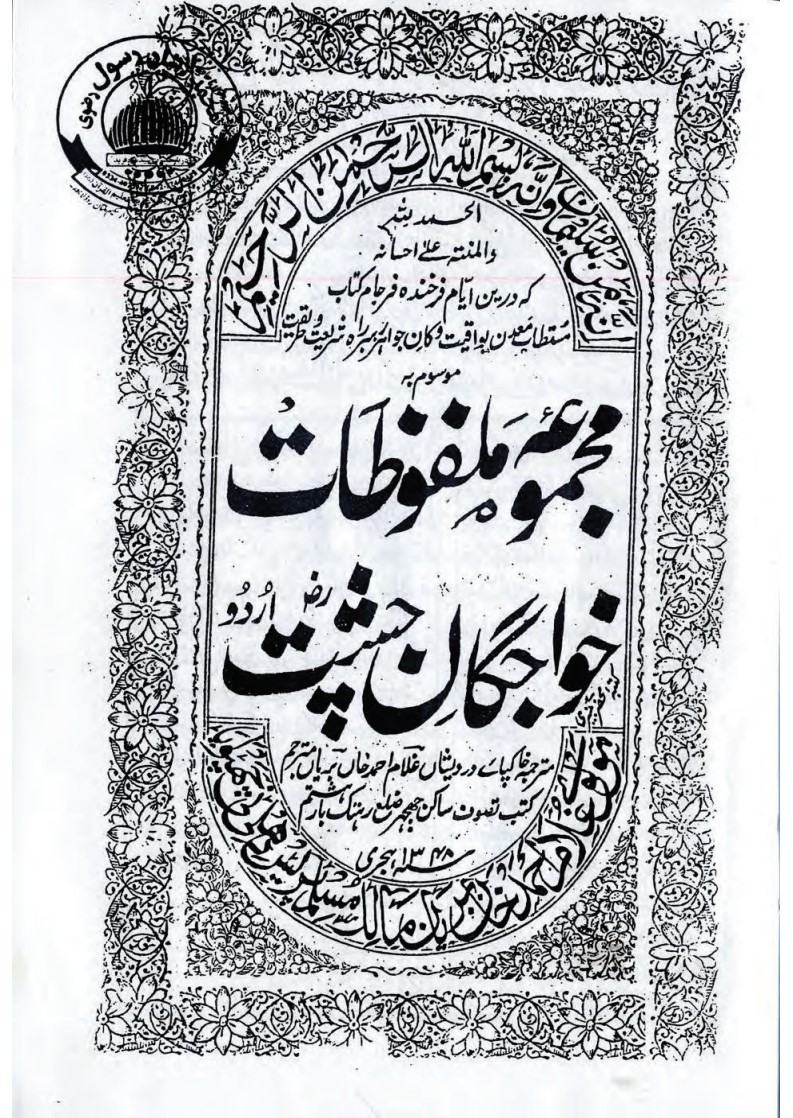 رسول رضوی
انہ من سلیمان وانہ بسم اللہ الرحمن الرحیم
الحمد للہ
والمنتہ علےٰ احسانہ
کہ درین ایام فرخندہ فرجام کتاب
مستطاب معدن یواقیت وکان جواہر زواہر راہ شریعت و طریقت
موسوم بہ
مجموعہ ملفوظات
خواجگانِ چشت رض اُردُو
مترجمہ خاکپائے درویشاں غلام احمد خاں بریاں مترجم
کتب تصوف ساکن جھجر ضلع رہتک بار ہشتم
سنہ ۱۳۴۸ ہجری
غلام احمد خاں بریاں مالک مسلم پریس دہلی